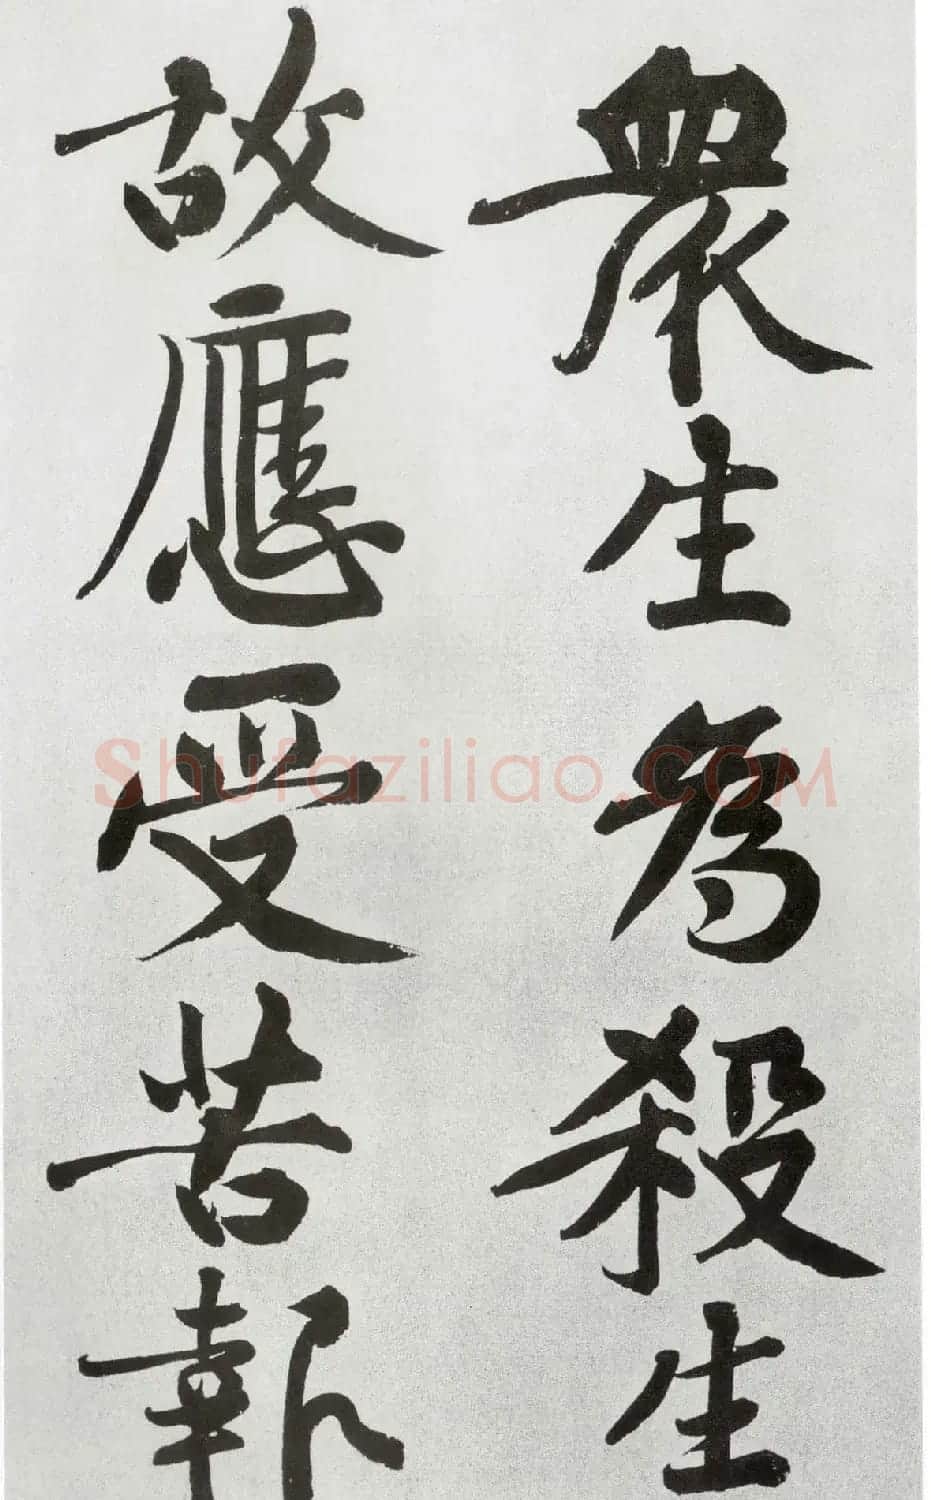 眾生為殺生
故應受苦報
Shufaziliao.COM